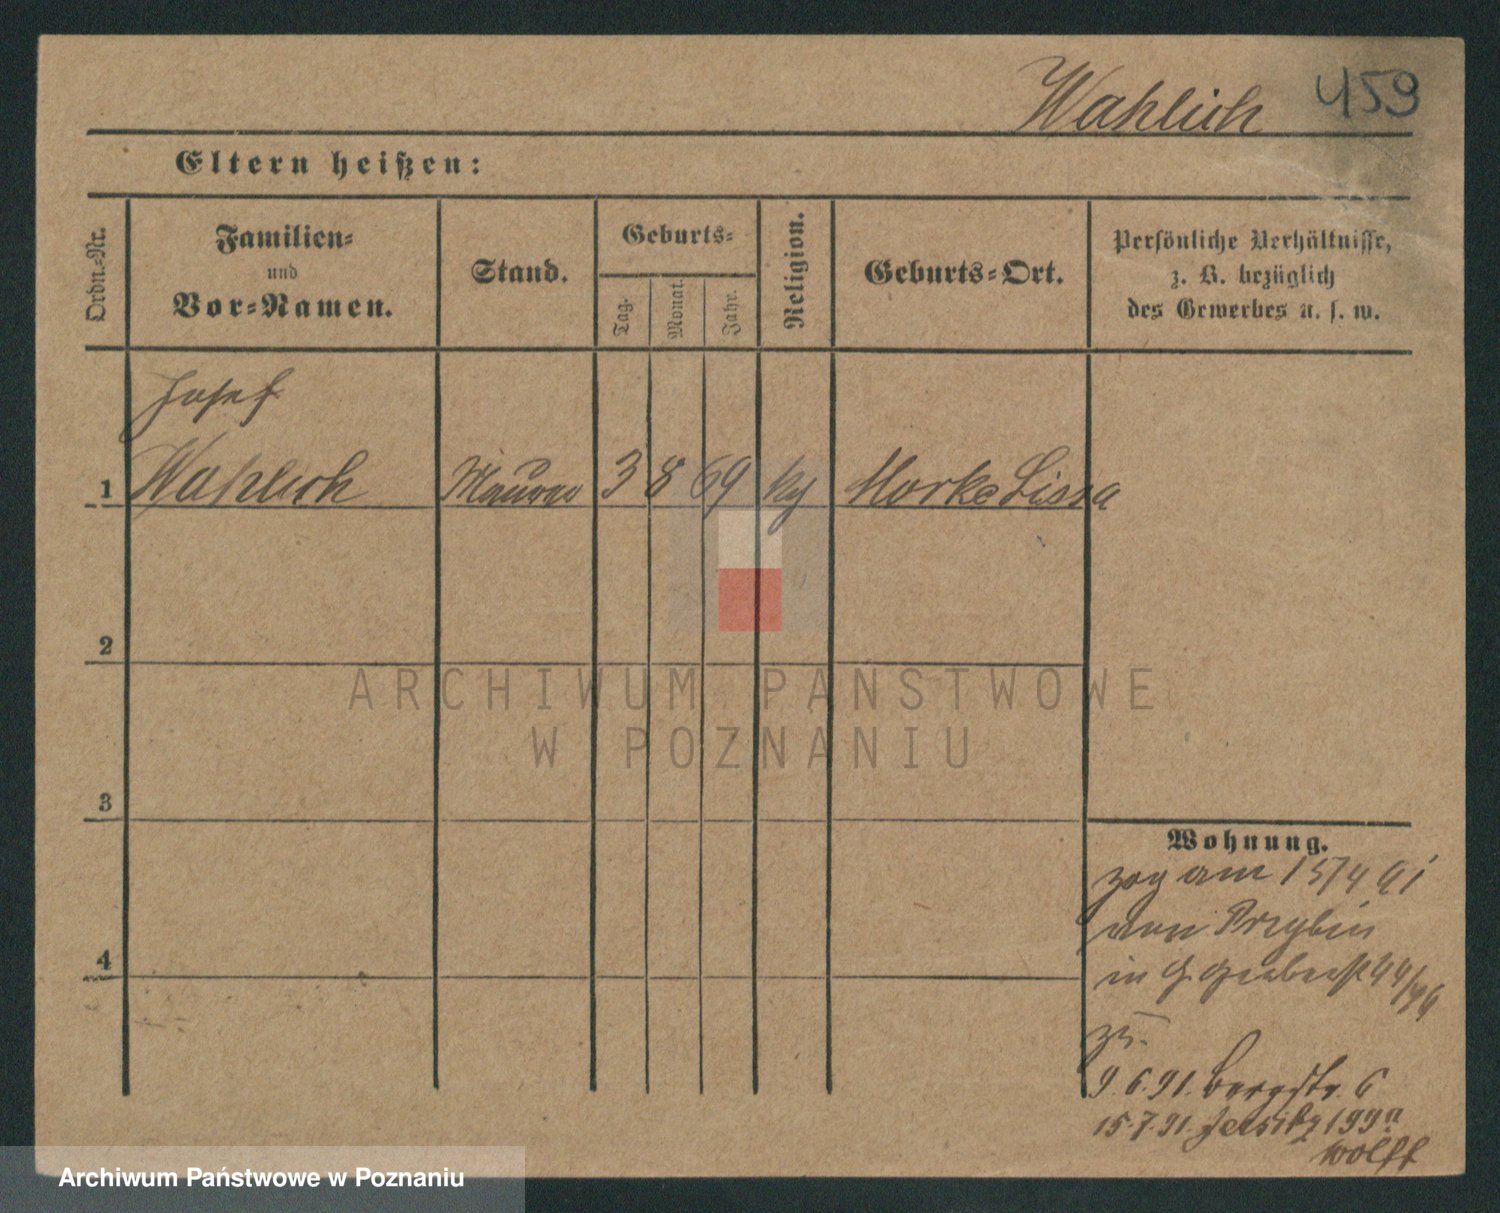 Wahlich 459
Eltern heißen:
Ordn.-Nr.
Familien-
und
Vor-Namen.
Stand.
Geburts-
Tag.
Monat.
Jahr.
Religion.
Geburts-Ort.
Persönliche Verhältnisse,
z. B. bezüglich
des Gewerbes u. s. w.
Josef
1 Wahlich Maurer 3 8 69 Marke Lissa
2
ARCHIWUM PAŃSTWOWE
W POZNANIU
3
Wohnung.
zog am 15/4 91
von
in
4
zu
9.6.91. Bergstr. 6
15.7.91. Jersitz 199
Wolff
Archiwum Państwowe w Poznaniu